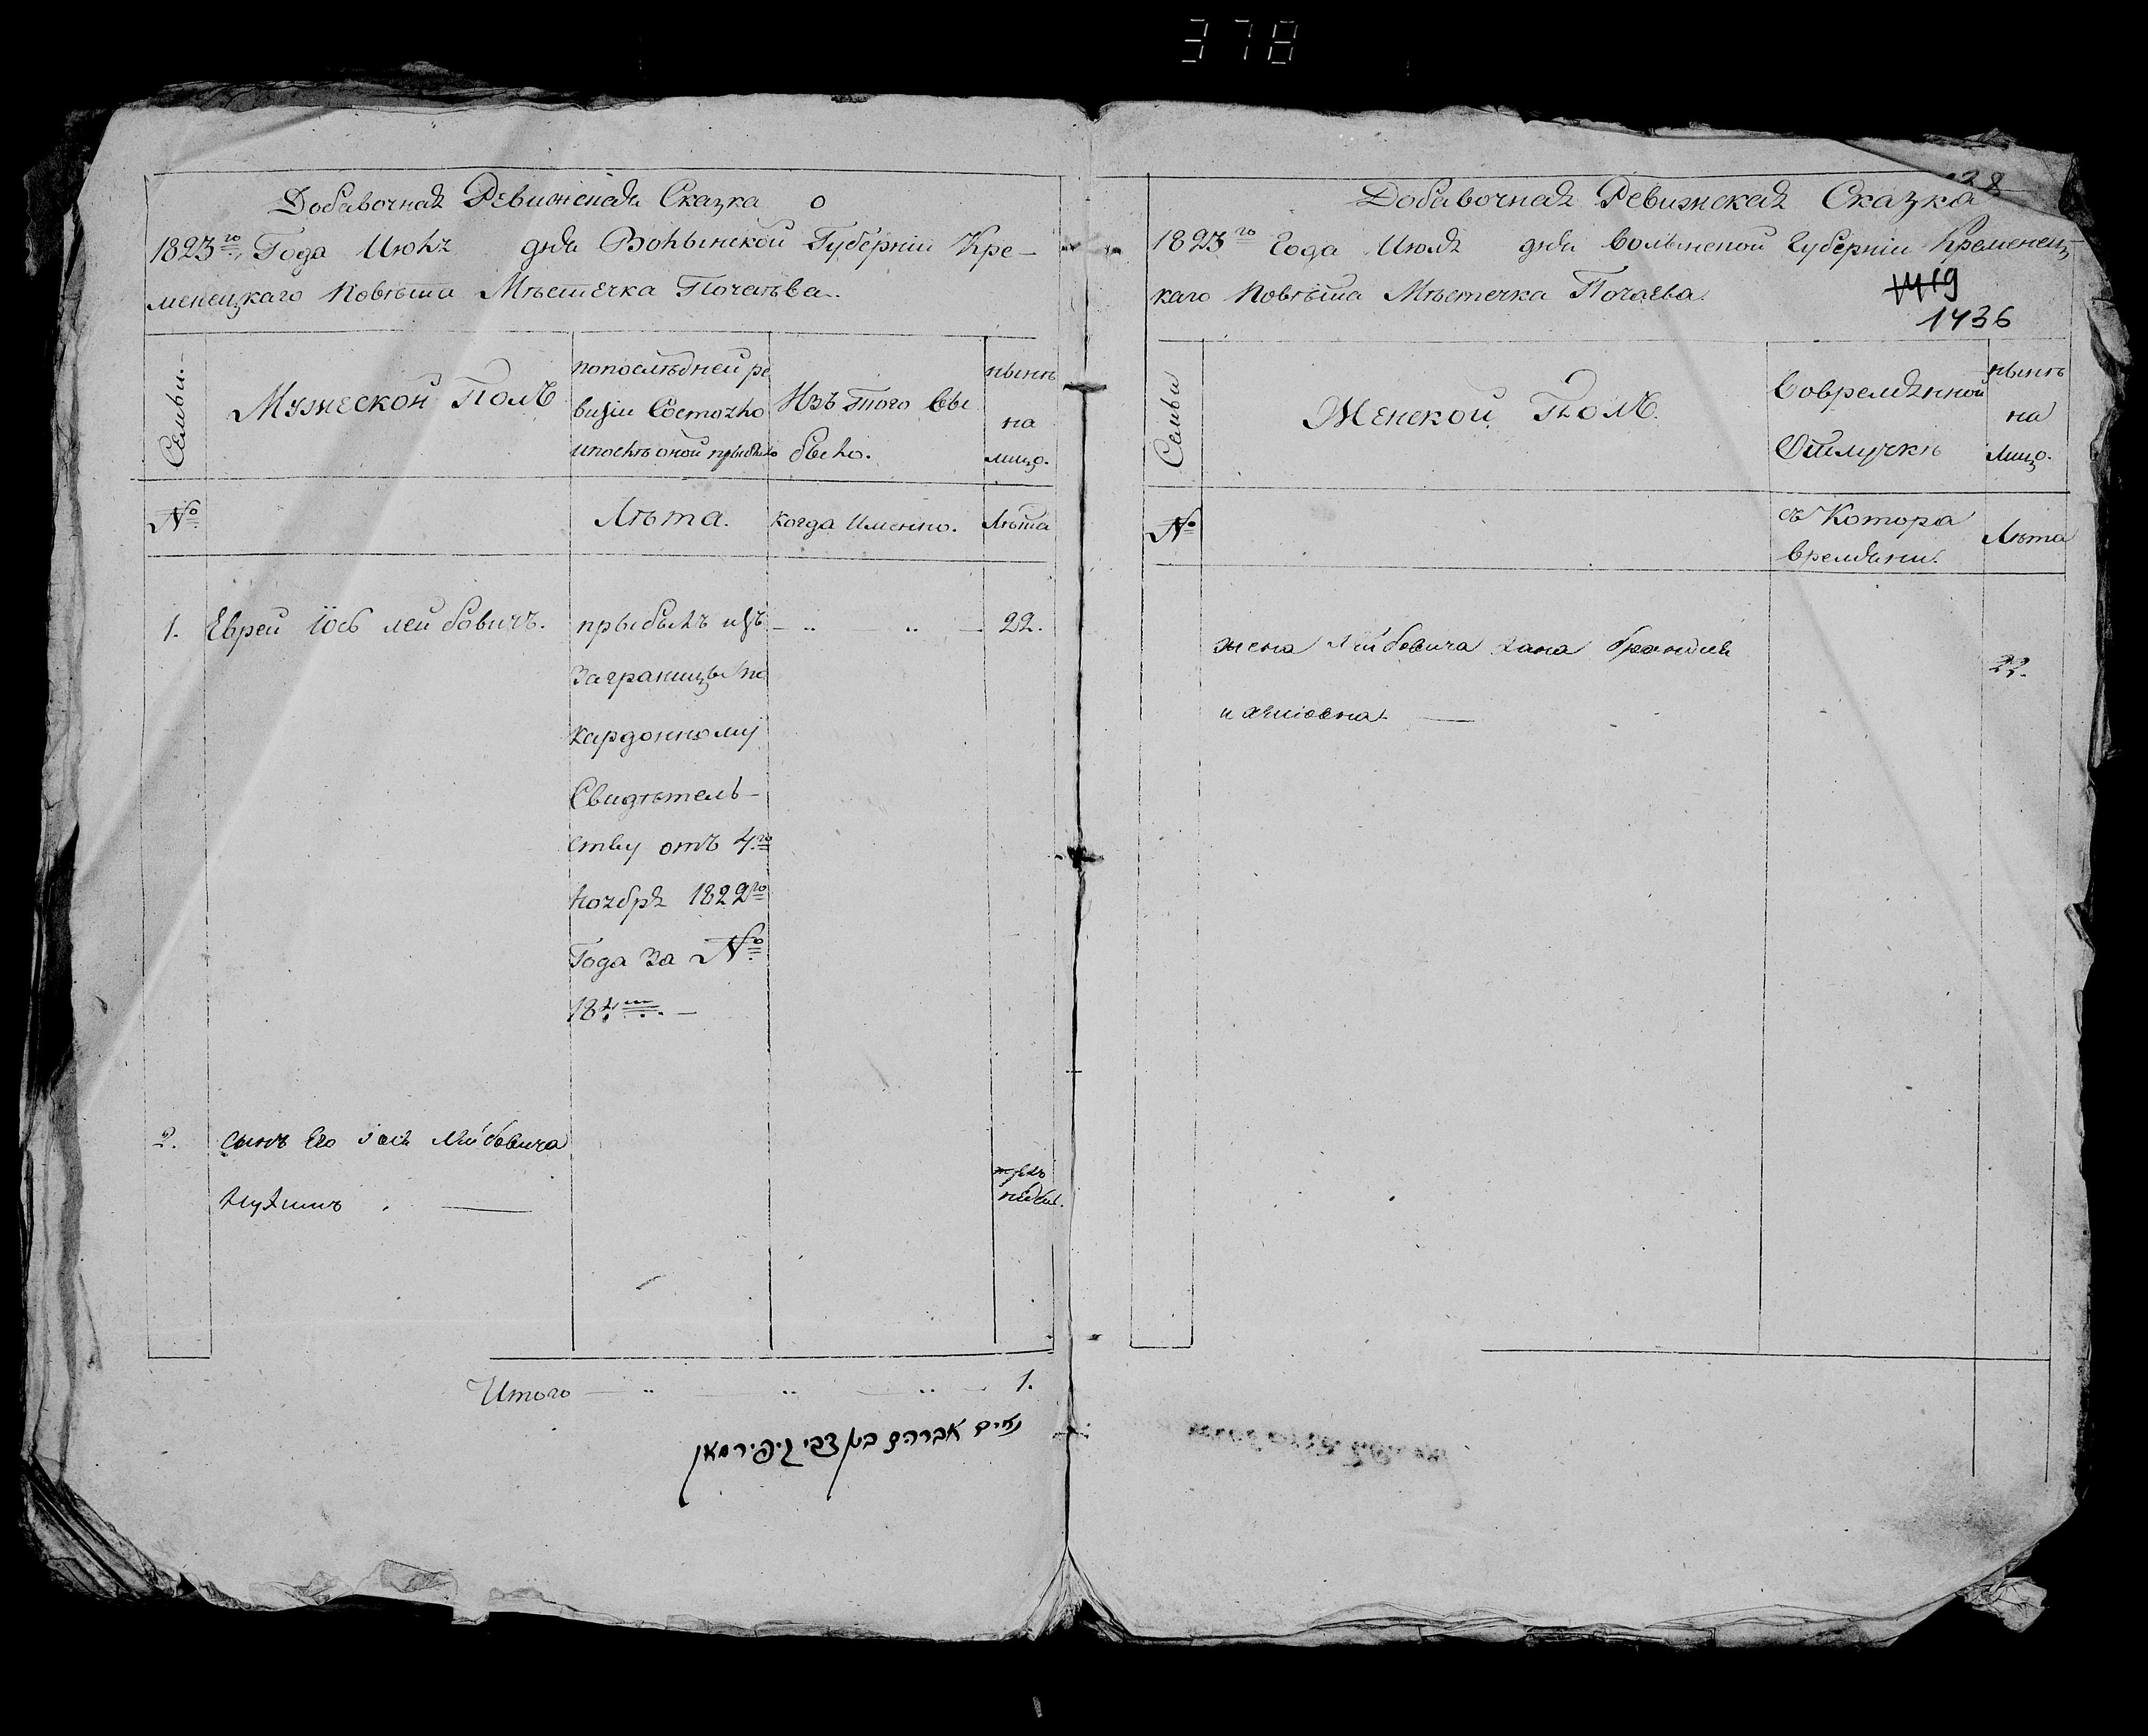 378
Добавочная Ревижская Сказка
1823го Года Июля дня Волынской Губернии Кре-
менецкаго Повѣта Мѣстечка Почаева.
Семьи.
Мужеской Полъ
попослѣдней ре
визіи Состояло
ипослѣ оной прыбыло
Изъ того Вы
было.
нынѣ
на
лицо.
№
Лѣта.
когда Именно.
Лѣта
1. Еврей Іось Лейбовичъ.
прыбылъ изъ
Заграницы по
Кардонному
Свидѣтель-
ству отъ 4го
Ноября 1822го
Года За №
22.
2. сынъ Его Іося Лейбовича
недѣль.
Итого 1.
Добавочная Ревижская Сказка
1823го Года Июля дня Волынской Губерніи Кременец
каго Повѣта Мѣстечка Почаева.
1436
Семьи
Женской Полъ.
Вовремѣнной
Отлучкѣ
нынѣ
на
Лицо.
№
съ Котора
времѣни.
Лѣта
жена Лейбовича хана
22.